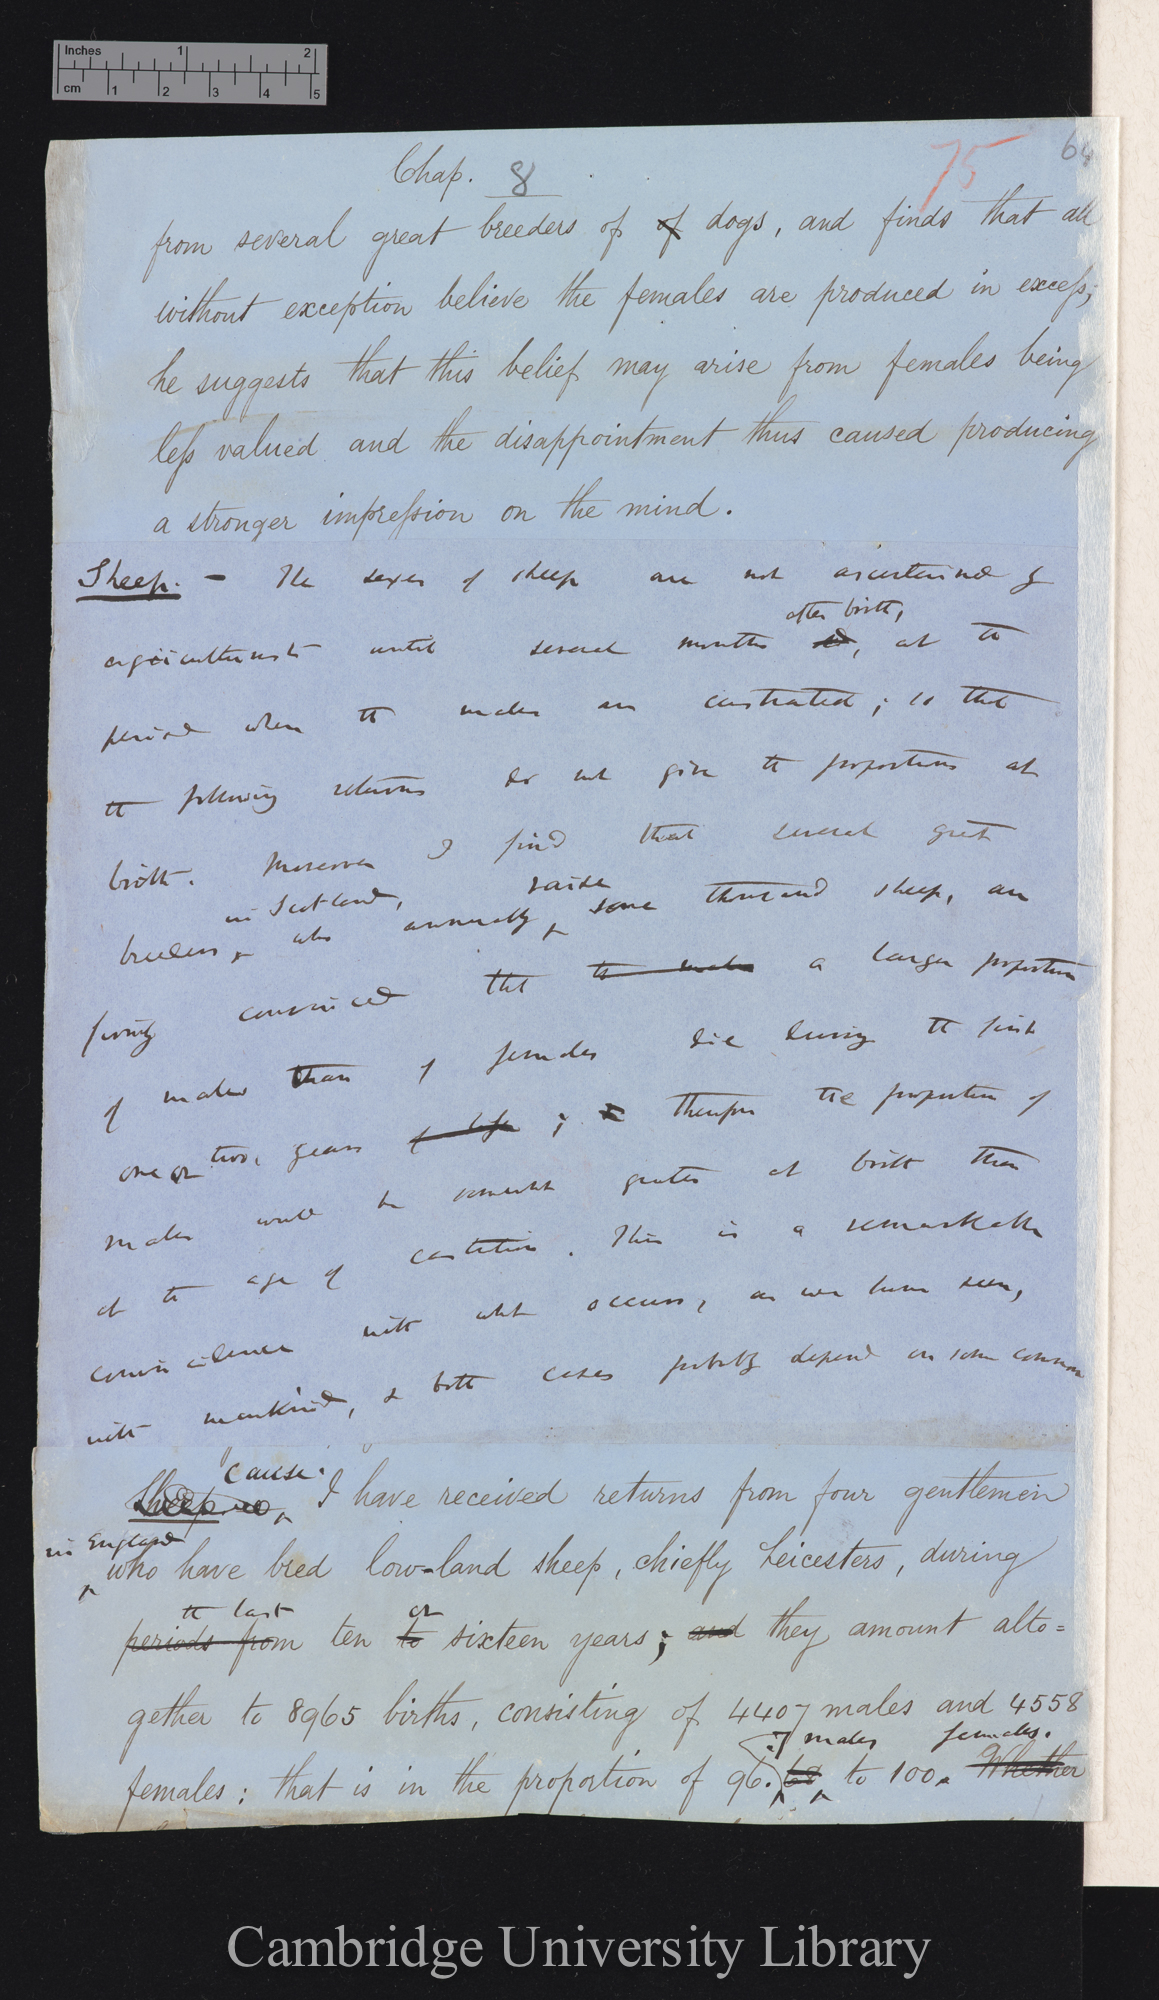 Inches 1 2
cm 1 2 3 4 5
Chap. 8 75 64
from several great breeders of of dogs, and finds that all
without exception believe the females are produced in excess;
he suggests that this belief may arise from females being
less valued and the disappointment thus caused producing
a stronger impression on the mind.
Sheep. — The sexes of sheep are not ascertained by
after birth,
agriculturists until several months old, at the
period when the males are castrated; so that
the following returns do not give the proportions at
birth. Moreover I find that several great
in Scotland, raise
breeders, who annually some thousand sheep, are
firmly convinced that the males a larger proportion
of males than of females die during the first
one or two, years of life; therefore the proportion of
males would be somewhat greater at birth than
at the age of castration. This is a remarkable
coincidence with what occurs, as we have seen,
with mankind, & both cases probably depend on some common
cause.
Sheep I have received returns from four gentlemen
in England
who have bred low-land sheep, chiefly Leicesters, during
the last or
periods from ten to sixteen years; and they amount alto=
gether to 8965 births, consisting of 4407 males and 4558
.7 males females.
females: that is in the proportion of 96.68 to 100. Whether
Cambridge University Library